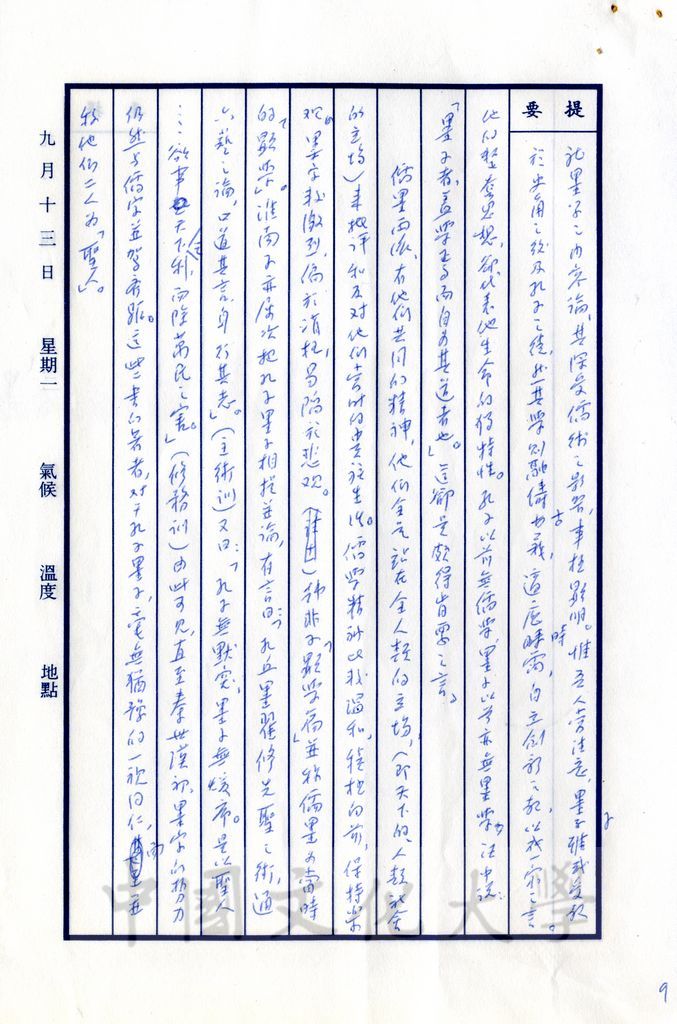 提要
就墨學之內容論,其深受儒術之影響,事極顯明。惟吾人當注意,墨子雖或受教
於史角之後及孔子之徒,然其學則融儔古義,適應時需,自立創新之教,以成一家之言。
他的整套思想,卻代表他生命的獨特性。孔子以前無儒學,墨子以前亦無墨學,汪中說:
「墨子者,蓋學焉而自為其道者也。」這卻是頗得肯要之言。
儒墨兩派,有他們共同的精神,他們全是站在全人類的立場,(即天下的人類社會
的立場)來批評和反對他們當時的貴族生活。儒學精神比較溫和,積極的前,保持樂
觀。墨家較激烈,偏於消極,易陷於悲觀。韓非子「顯學篇」並稱儒墨為當時
的「顯學」。淮南子亦屢次把孔子墨子相提並論,有言曰:「孔丘墨翟修先聖之術,通
六藝之論,口道其言,身行其志。」(主術訓)又曰:「孔子無默突,墨子無煖席。是以聖人
……欲事起天下利,而除萬民之害。」(修務訓)由此可見,直至秦世漢初,墨家的勢力
仍然與儒家並駕齊驅。這些書的著者,對于孔子墨子,毫無猶豫的一視同仁,而並
稱他們二人為「聖人」。
九月十三日 星期一 氣候 溫度 地點
中國文化大學
9